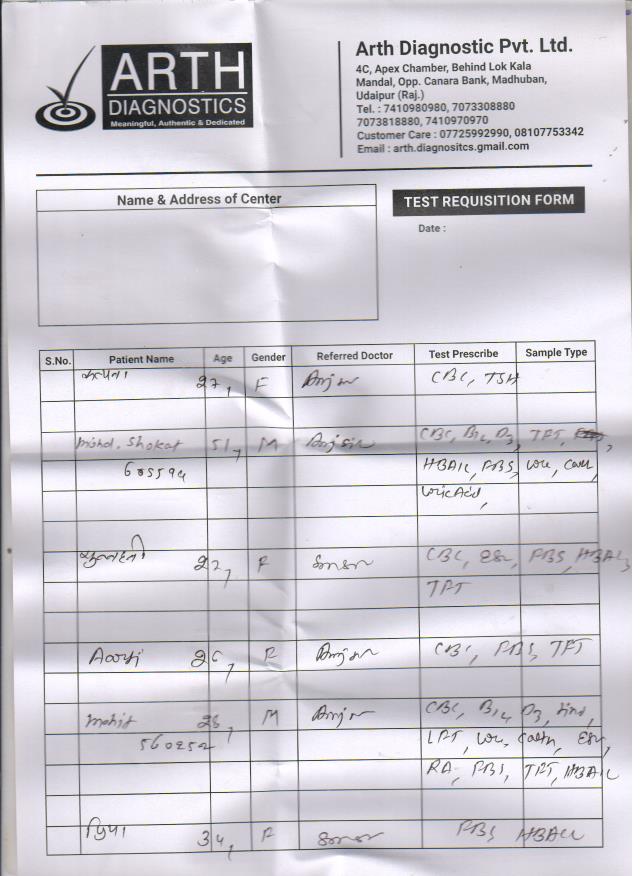 ARTH
DIAGNOSTICS
Meaningful, Authentic & Dedicated
Arth Diagnostic Pvt. Ltd.
4C, Apex Chamber, Behind Lok Kala
Mandal, Opp. Canara Bank, Madhuban,
Udaipur (Raj.)
Tel. : 7410980980, 7073308880
7073818880, 7410970970
Customer Care : 07725992990, 08107753342
Email : arth.diagnositcs.gmail.com
Name & Address of Center
TEST REQUISITION FORM
Date :
S.No. Patient Name Age Gender Referred Doctor Test Prescribe Sample Type
27, F CBC, TSH
Mohd. Shokat 51, M CBC, B12, D3, TFT,
605594 HBA1C, FBS,
Uric Acid,
22, F CBC, ESR, FBS, HBA1C,
TFT
26, F CBC, FBS, TFT
Mohit 28, M CBC, B12, D3,
560252 LFT, ESR,
RA, FBS, TFT, HBA1C
प्रिया 34, F FBS HBA1C